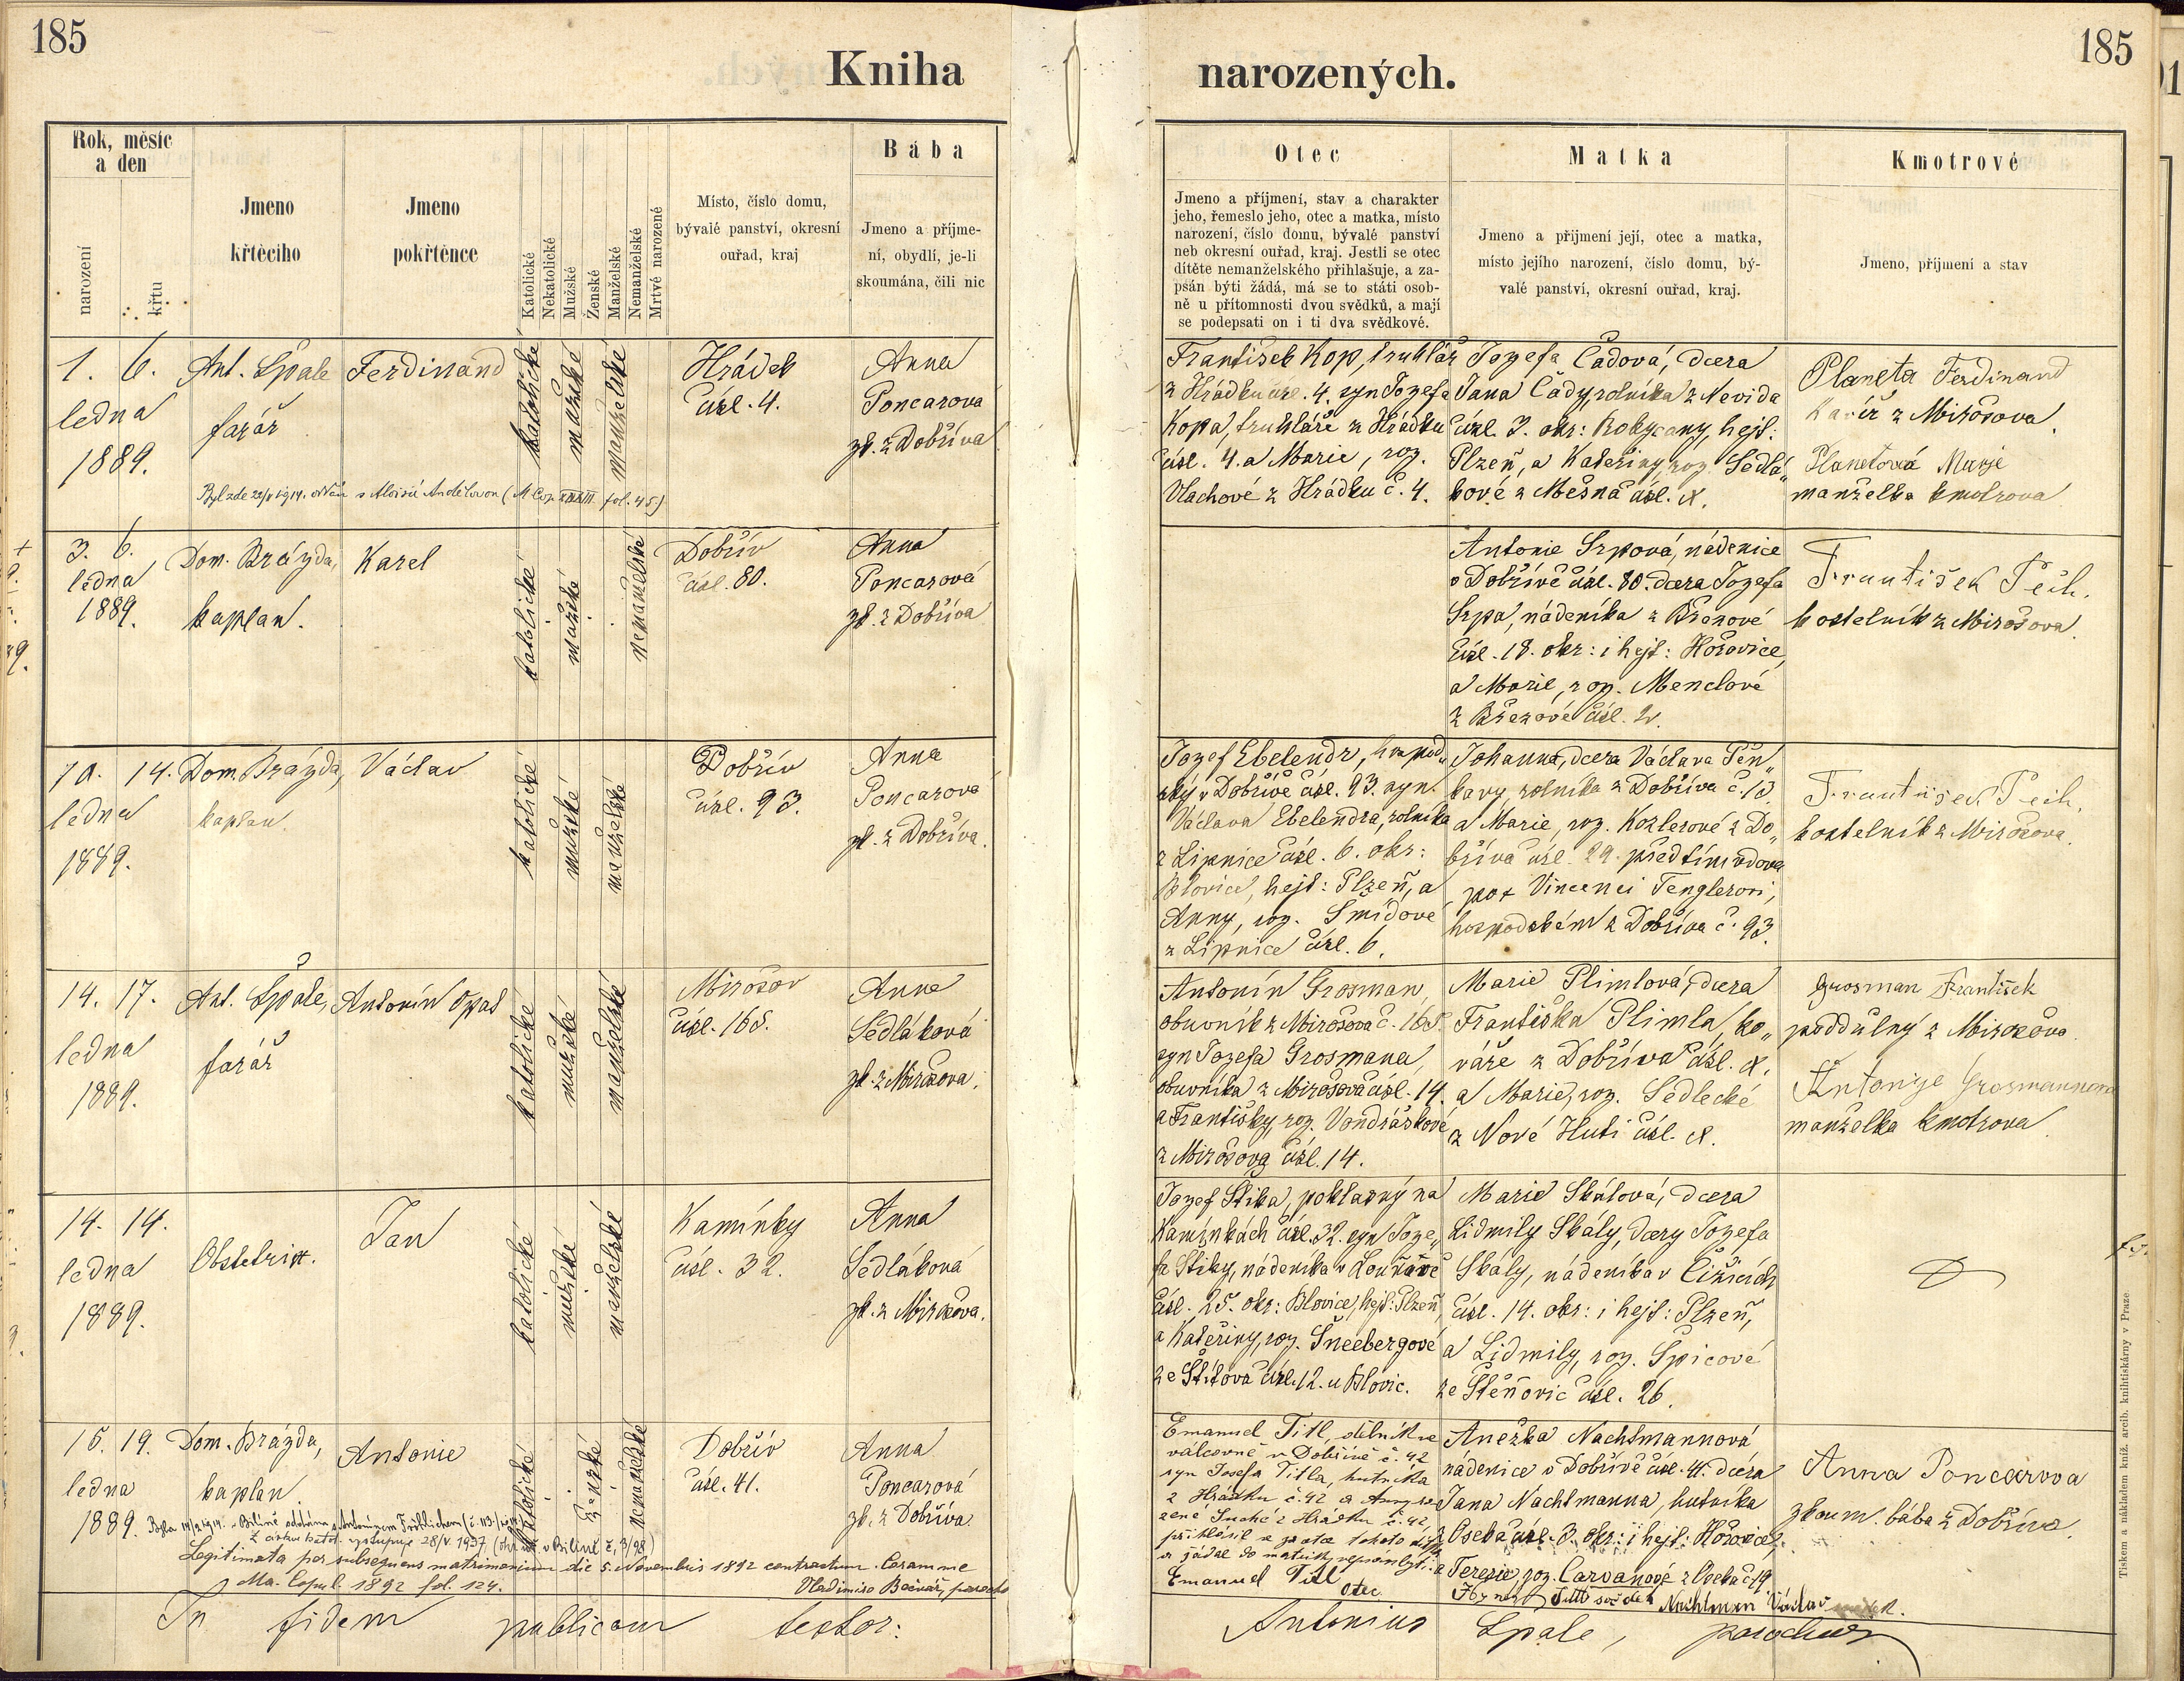 185
185
Kniha
narozených.
Rok, měsíc
a den
narození
křtu
Jmeno
křtěcího
Jmeno
pokřtěnce
Katolické
Nekatolické
Mužské
Ženské
Manželské
Nemanželské
Mrtvé narozené
Místo, číslo domu,
bývalé panství, okresní
ouřad, kraj
Bába
Jmeno a příjme-
ní, obydlí, je-li
skoumána, čili nic
Otec
Jmeno a příjmení, stav a charakter
jeho, řemeslo jeho, otec a matka, místo
narození, číslo domu, bývalé panství
neb okresní ouřad, kraj. Jestli se otec
dítěte nemanželského přihlašuje, a za-
psán býti žádá, má se to státi osob-
ně u přítomnosti dvou svědků, a mají
se podepsati on i ti dva svědkové.
Matka
Jmeno a přijmení její, otec a matka,
místo jejího narození, číslo domu, bý-
valé panství, okresní ouřad, kraj.
Kmotrové
Jmeno, příjmení a stav
1. 6.
ledna
1889.
Ant. Špale
farář
Ferdinand
katolické
mužské
manželské
Hrádek
čísl. 4.
Anna
Poncarova
zk. z Dobříva
František Kop, truhlář
z Hrádku čísl. 4. syn Jozefa
Kopa, truhláře z Hrádku
čísl. 4. a Marie, roz.
Vlachové z Hrádku č. 4.
Jozefa Čadová, dcera
Jana Čady, rolníka z Nevida
čísl. 3. okr: Rokycany, hejt:
Plzeň, a Kateřiny, roz. Sedlá„
kové z Mešna čísl. X.
Planeta Ferdinand
z Mirošova.
Planetová Marje
manželka kmotrova
Byl zde 1914. oddán s Aloisií Andělovou fol. 45)
3. 6.
ledna
1889.
Dom. Brázda,
kaplan.
Karel
katolické
mužské
nemanželské
Dobřív
čísl. 80.
Anna
Poncarová
zk. z Dobříva
Antonie Srpová, nádenice
v Dobřívě čísl. 80. dcera Jozefa
Srpa, nádeníka z Březové
čísl. 18. okr: i hejt: Hořovice,
a Marie, roz. Menclové
z Březové čísl. 2.
František Pech.
kostelník z Mirošova.
10. 14.
ledna
1889.
Dom. Brázda,
kaplan.
Václav
katolické
mužské
manželské
Dobřív
čísl. 93.
Anna
Poncarová
zk. z Dobříva.
Jozef Ebelendr, hospod„
ský v Dobřívě čísl. 93. syn
Václava Ebelendra, rolníka
z Lipnice čísl. 6. okr:
Blovice, hejt: Plzeň, a
Anny, roz. Šmídové
z Lipnice čísl. 6.
Johanna, dcera Václava Pěn„
kavy rolníka z Dobříva č. 13.
a Marie, roz. Kozlerové z Do„
bříva čísl. 29. předtím vdova
po + Vincenci Tenglerovi,
hospodském z Dobříva č. 93.
František Pech.
kostelník z Mirošova.
14. 17.
ledna
1889.
Ant. Špale,
farář
Antonín Opat
katolické
mužské
manželské
Mirošov
čísl. 168.
Anna
Sedláková
zk. z Mirošova.
Antonín Grosman,
obuvník z Mirošova č. 168.
syn Jozefa Grosmana,
obuvníka z Mirošova čísl. 14.
a Františky, roz. Vondráškové
z Mirošova čísl. 14.
Marie Plimlová, dcera
Františka Plimla, ko„
váře z Dobříva čísl. X.
a Marie, roz. Sedlecké
z Nové Huti čísl. X.
Grosman František
poddůlný z Mirošova
Antonije Grosmannova
manželka kmotrova.
14. 14.
ledna
1889.
Obstetrix.
Jan
katolické
mužské
manželské
Kamínky
čísl. 32.
Anna
Sedláková
zk. z Mirošova.
Jozef Štika, poklasný na
Kamínkách čísl. 32. syn Joze„
fa Štiky, nádeníka v Louňově
čísl. 25. okr: Blovice, hejt: Plzeň,
a Kateřiny, roz. Šneebergové
ze Štítova čísl. 12. u Blovic.
Marie Skálová, dcera
Lidmily Skály, dcery Jozefa
Skály, nádeníka v Čížicích
čísl. 14. okr: i hejt: Plzeň,
a Lidmily, roz. Špicové
ze Štěnovic čísl. 26.
15. 19.
ledna
1889.
Dom. Brázda,
kaplan.
Antonie
katolické
ženské
nemanželské
Dobřív
čísl. 41.
Anna
Poncarová
zk. z Dobříva
Emanuel Titl, dělník ve
válcovně v Dobřívě č. 42
syn Josefa Titla, hutníka
z Hrádku č. 42 a Anny ro
zené Suché z Hrádku č. 42,
přihlásil se za otce tohoto dítěte
a žádal do matrik
Emanuel Titl
otec
Anežka Nachtmannová
nádenice v Dobřívě čísl. 41. dcera
Jana Nachtmanna, hutníka
z Oseka čísl. 3. okr: i hejt: Hořovice,
a Terezie, roz. Carvanové z Oseka č. 19
Titl svědek Nachtman Václav
Anna Poncarova
zkoum. bába z Dobříva.
Byla 1914. v Bílině oddána s Antonínem Fröhlichem
Z církve katol. vystoupila 28/V. 1937 v Bílině č. 3/98)
Legitimata per subsequens matrimonium die 5. Novembris 1892 contractum. Coram me
Ma. Copul. 1892 fol. 124.
Vladimiro Bečvář, parocho
In fidem publicam testor:
Antonius Špale, parochus
Tiskem a nákladem kníž. arcib. knihtiskárny v Praze.